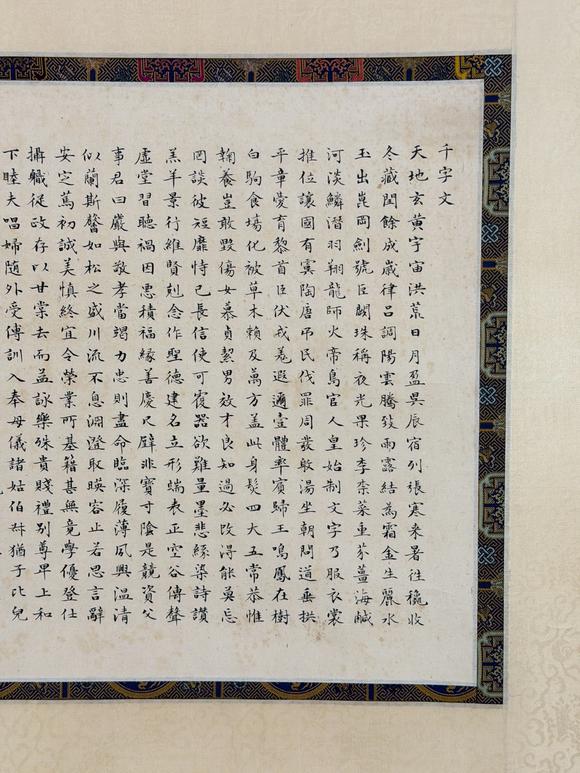 千字文
天地玄黃宇宙洪荒日月盈昃辰宿列張寒来暑往穐收
冬藏閏餘成歲律呂調陽雲騰致雨露結為霜金生麗水
玉出崑岡劍號巨闕珠稱夜光果珍李柰菜重芥薑海鹹
河淡鱗潛羽翔龍師火帝鳥官人皇始制文字乃服衣裳
推位讓國有虞陶唐吊民伐罪周發殷湯坐朝問道垂拱
平章愛育黎首臣伏戎羌遐邇壹體率賓歸王鳴鳳在樹
白駒食場化被草木賴及萬方蓋此身髮四大五常恭惟
鞠養豈敢毀傷女慕貞絜男效才良知過必改得能莫忘
罔談彼短靡恃己長信使可覆器欲難量墨悲絲染詩讚
羔羊景行維賢剋念作聖德建名立形端表正空谷傳聲
虛堂習聽禍因惡積福緣善慶尺璧非寶寸陰是競資父
事君曰嚴與敬孝當竭力忠則盡命臨深履薄夙興溫清
似蘭斯馨如松之盛川流不息淵澄取暎容止若思言辭
安定篤初誠美慎終宜令榮業所基籍甚無竟學優登仕
攝職從政存以甘棠去而益詠樂殊貴賤禮別尊卑上和
下睦夫唱婦隨外受傅訓入奉母儀諸姑伯叔猶子比兒